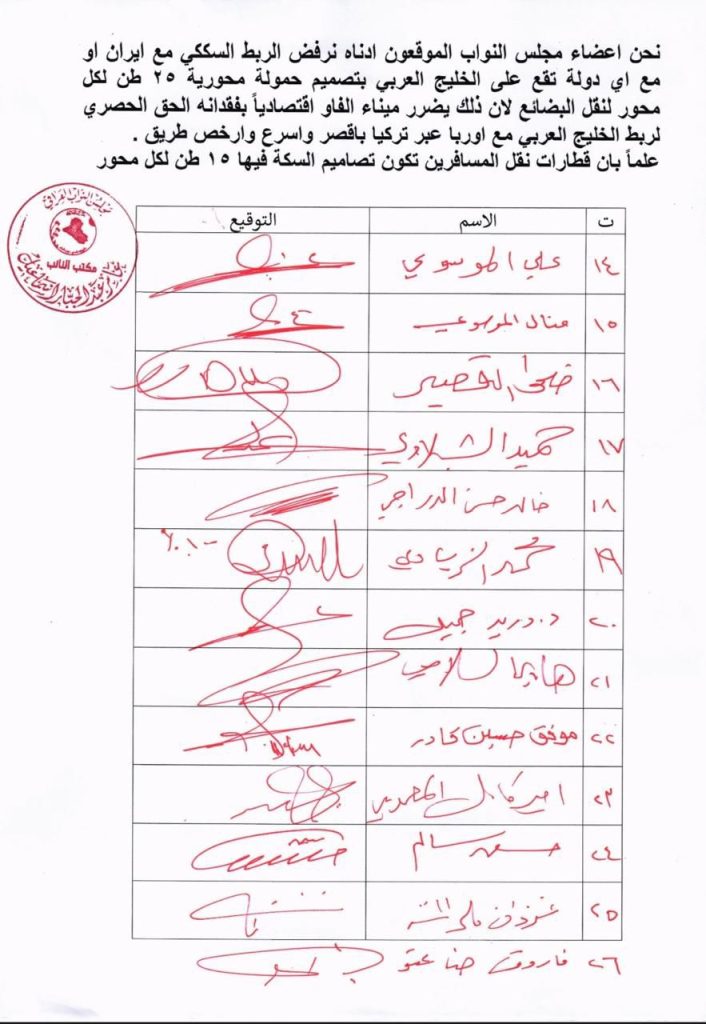 نحن اعضاء مجلس النواب الموقعون ادناه نرفض الربط السككي مع ايران او
مع اي دولة تقع على الخليج العربي بتصميم حمولة محورية ٢٥ طن لكل
محور لنقل البضائع لان ذلك يضرر ميناء الفاو اقتصادياً بفقدانه الحق الحصري
لربط الخليج العربي مع اوربا عبر تركيا باقصر واسرع وارخص طريق .
علماً بان قطارات نقل المسافرين تكون تصاميم السكة فيها ١٥ طن لكل محور
مجلس النواب العراقي
مكتب النائب
ت الاسم التوقيع
١٤ علي الموسوي
١٥ منال الموسوي
١٦ ضحى القصير
١٧ حميد الشبلاوي
١٨ خالد حسن الدراجي
١٩ محمد الزيادي
٢٠ د. دريد جميل
٢١
٢٢ موفق حسين
٢٣ امير كامل المعموري
٢٤ سالم
٢٥
٢٦ فاروق حنا عتو